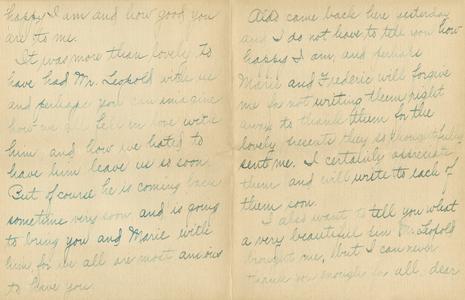 happy I am and how good you
are to me.
It was more than lovely to
have had Mr. Leopold with us
and perhaps you can imagine
how we all fell in love with
him, and how we hated to
have him leave us so soon.
But of course he is coming back
sometime very soon and is going
to bring you and Marie with
him, for we all are most anxious
to have you.
Aldo came back here yesterday
and I do not have to tell you how
happy I am, and perhaps
Marie and Frederic will forgive
me for not writing them right
away to thank them for the
lovely presents they so thoughtfully
sent me. I certainly appreciate
them and will write to each of
them soon.
I also want to tell you what
a very beautiful pin Mr. Leopold
brought me, but I can never
thank you enough for all, dear